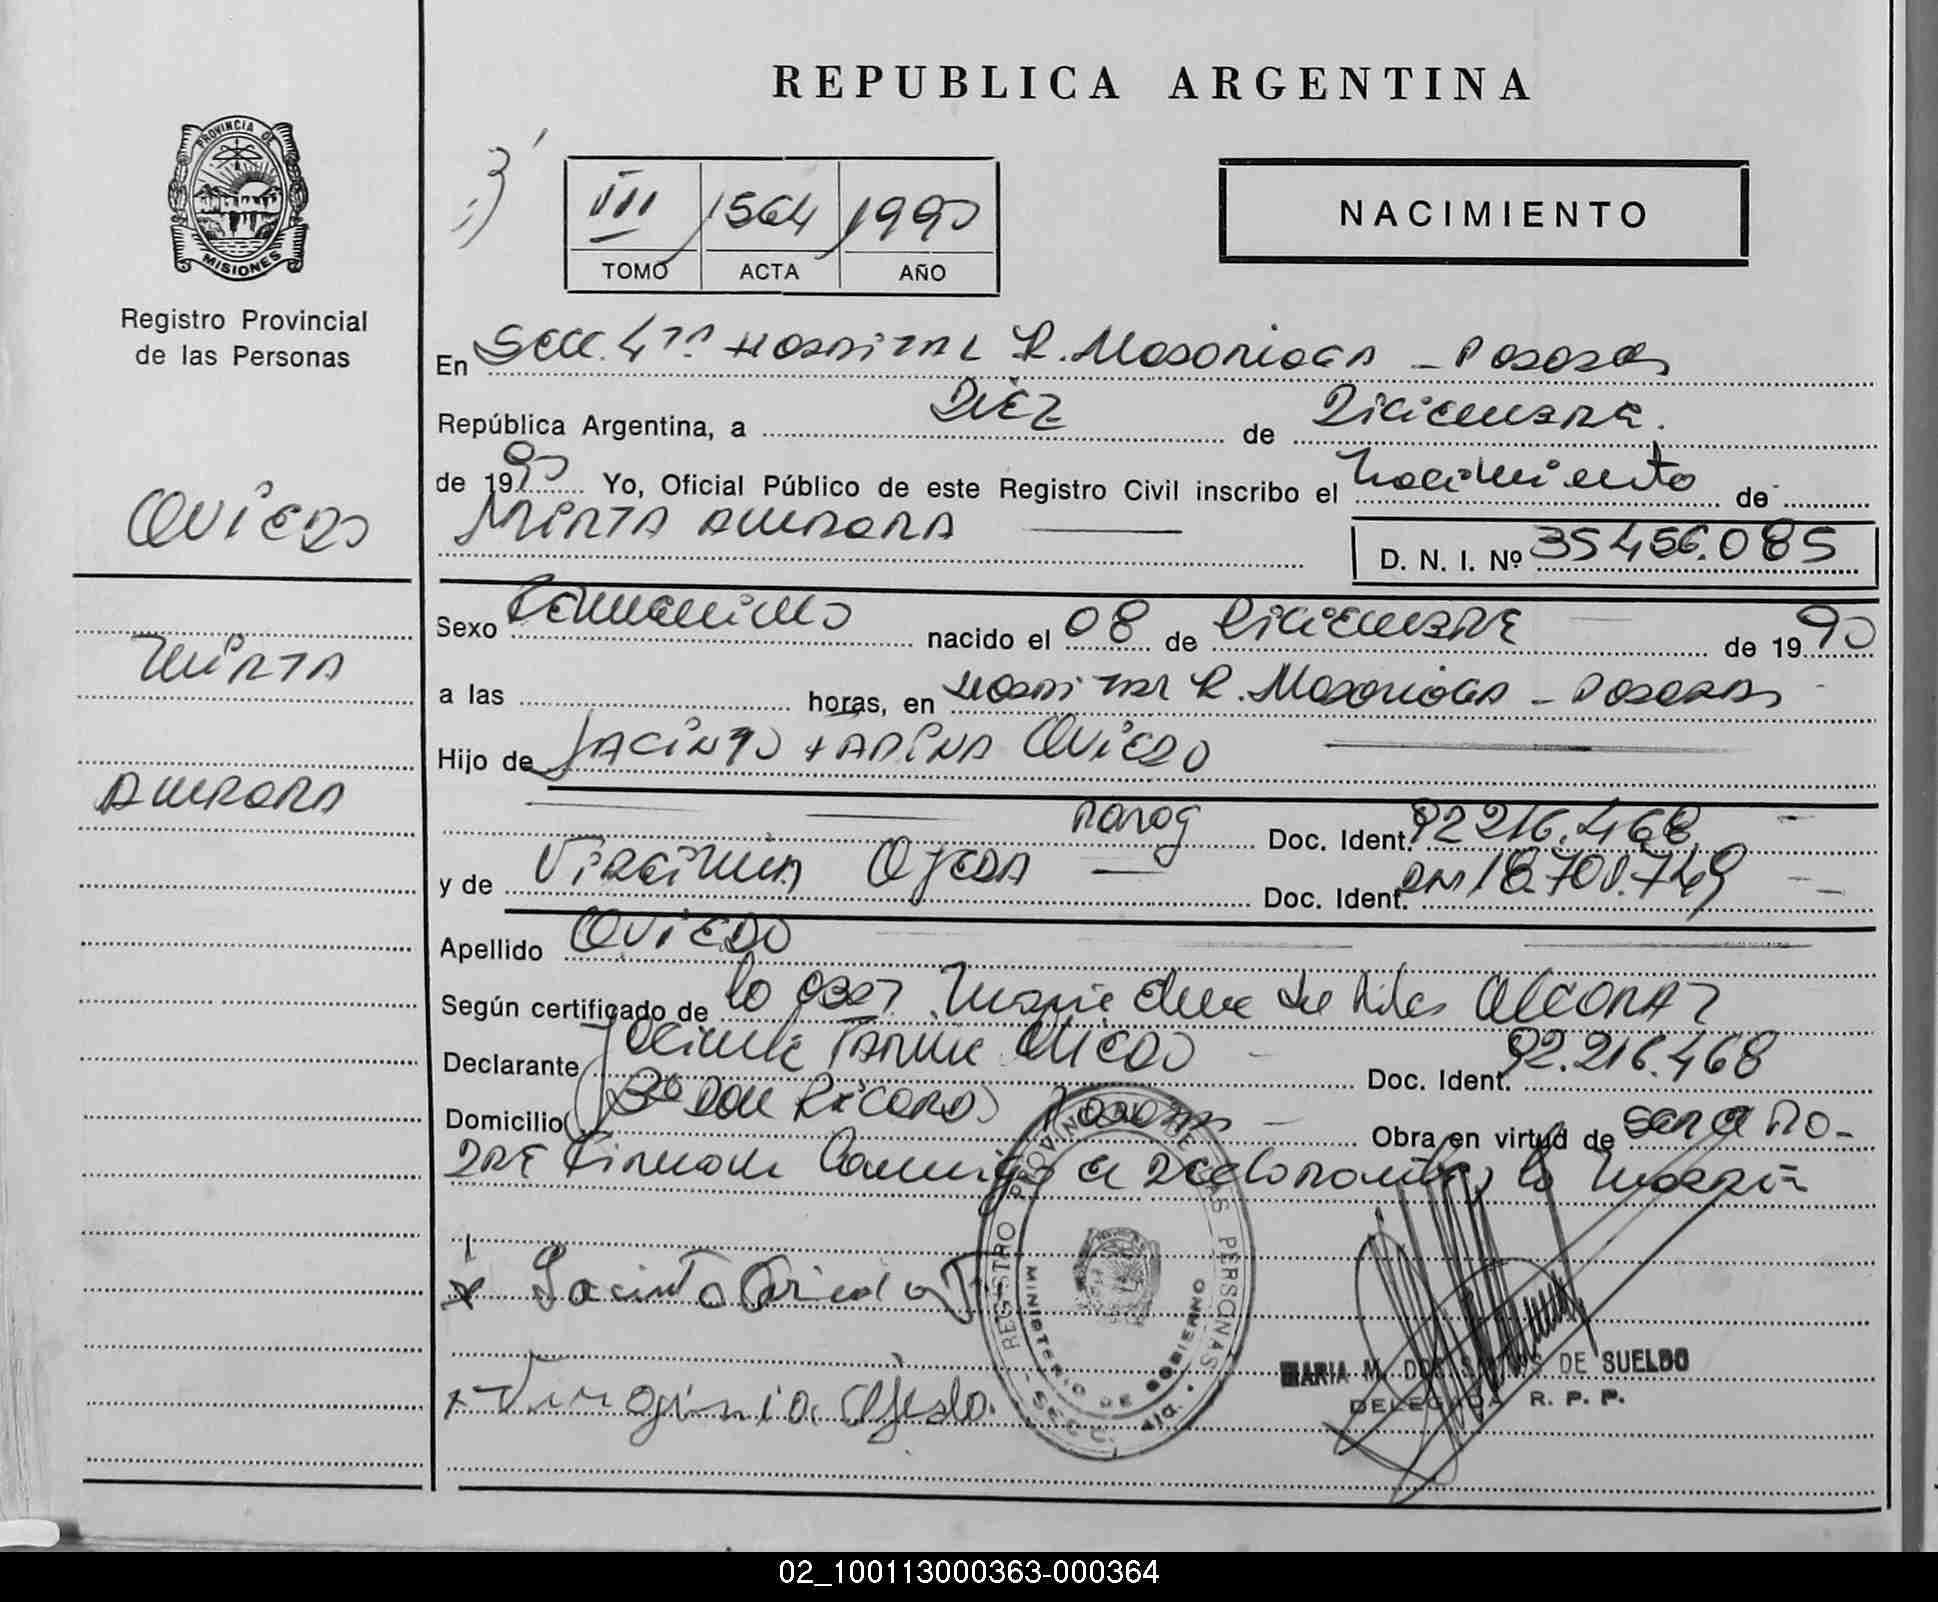 REPUBLICA ARGENTINA
PROVINCIA DE
MISIONES
Registro Provincial
de las Personas
III 1564 1990
TOMO ACTA AÑO
NACIMIENTO
En Secc. 4ta Hospital R. Madariaga - Posadas
República Argentina, a Diez de Diciembre.
de 1990 Yo, Oficial Público de este Registro Civil inscribo el Nacimiento de
OVIEDO
MIRTA AURORA
D. N. I. Nº 35456.085
Sexo Femenino nacido el 08 de Diciembre de 1990
MIRTA
a las horas, en Hospital R. Madariaga - Posadas
Hijo de JACINTO FARIÑA OVIEDO
AURORA
Doc. Ident. 92216.468
y de Virginia Ojeda Doc. Ident. DNI 18.700.749
Apellido OVIEDO
Según certificado de la Obst. Alcaraz
Declarante Jacinto Fariña Oviedo Doc. Ident. 92.216.468
Domicilio Bº Don Ricardo Posadas Obra en virtud de ser el Pa-
dre Firman Conmigo el Declarante y la Madre
x Jacinto Oviedo F
x Virginia Ojeda.
REGISTRO PROVINCIAL DE LAS PERSONAS
MINISTERIO DE GOBIERNO
SECC. 4ta.
MARIA M. DOS SANTOS DE SUELDO
DELEGADA R. P. P.
02_100113000363-000364